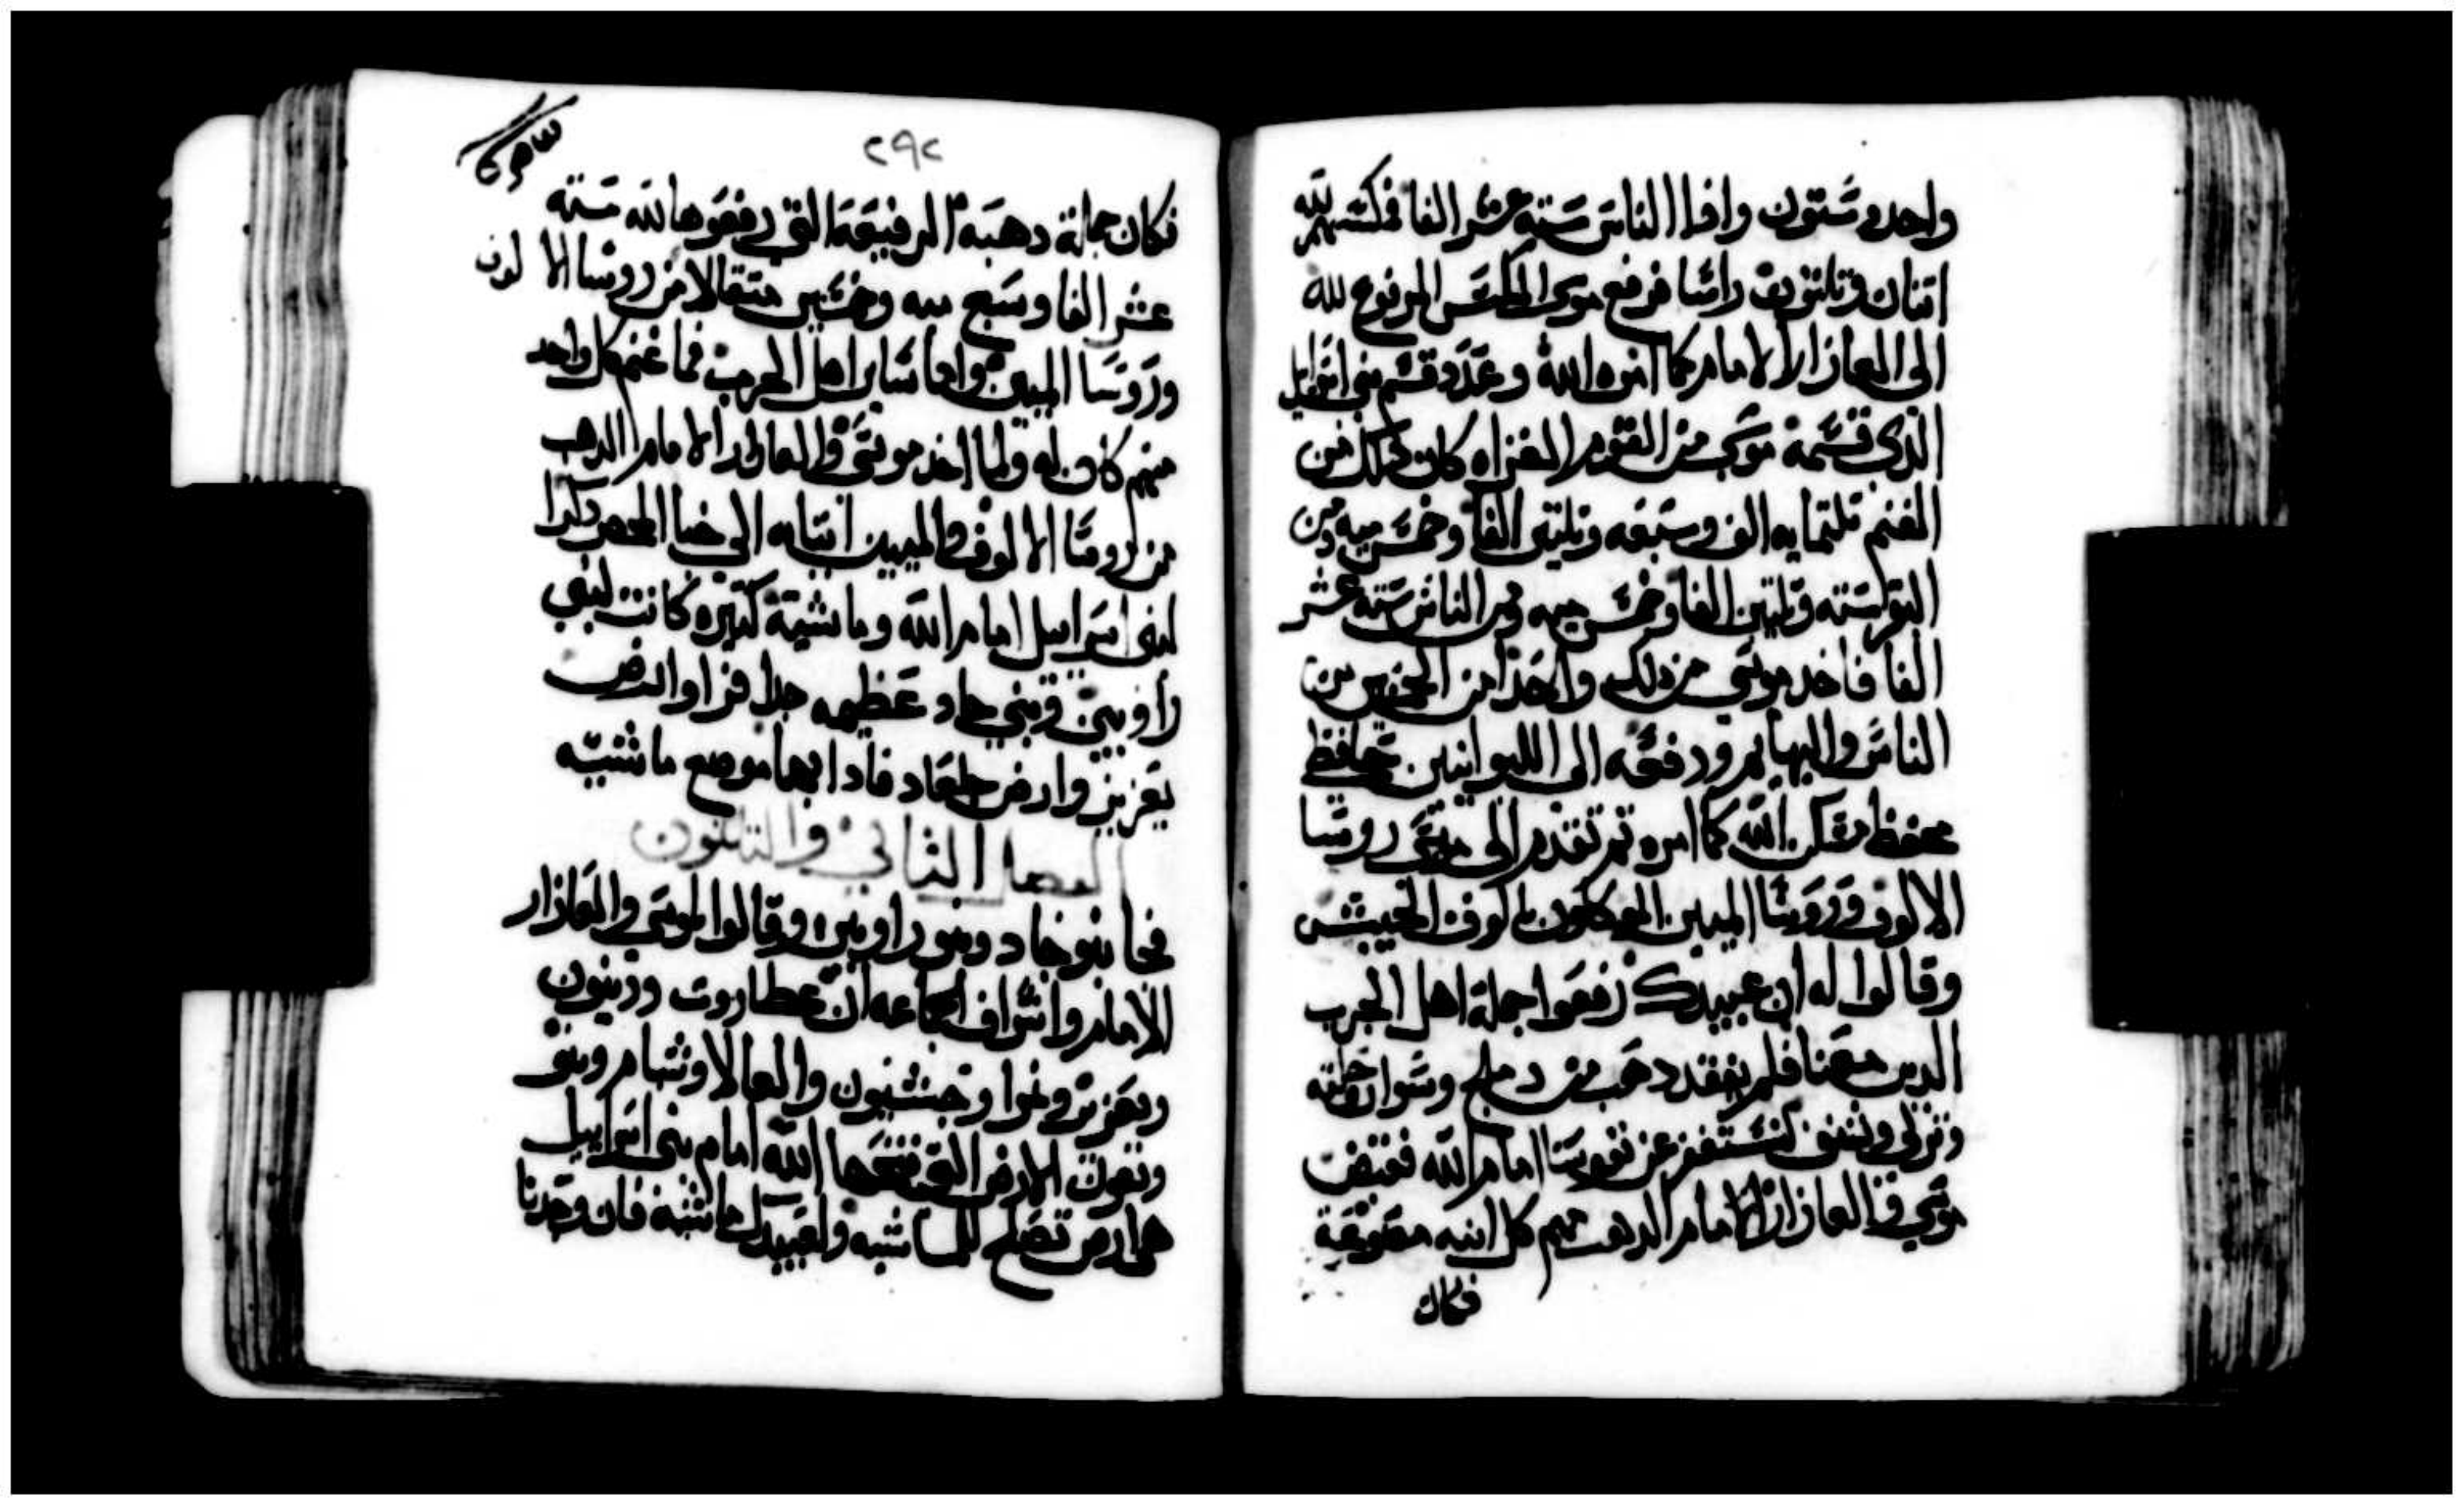 واحد وستون وافراد الناس سته عشر الفا فمكسهم لله
اتنان وتلتون راسا فرفع موسى المكس المرفوع لله
الى العازار الامام كما امره الله وعدد قسم بني اسراييل
الذي قسمه موسى من القوم الغزاه كان كذلك من
الغنم تلتمايه الف وسبعه وتلتين الفا وخمس ميه ومن
البقر سته وتلتين الفا وخمس ميه ومن الناس سته عشر
الفا فاخد موسى من ذلك واحدا من الخمسين من
الناس والبهايم ودفعه الى الليوانيين حافظي
محفظ مسكن الله كما امره تم تقدم الى موسى روسا
الالوف وروسا الميين الموكلون بالوف الجيش
وقالوا له ان عبيدك رفعوا جملة اهل الحرب
الدين معنا فلم يفقد دهب من دملج وسوار وخاتم
وشنف لنستغفر عن نفوسنا امام الله فقبض
موسى والعازار الامام الدهب منهم كل انيه مصنوعة
فكان
٢٩٢
فكان جملة دهب الرفيعة التي رفعوها لله سته
عشر الفا وسبع ميه وخمسين متقالا من روسا الالوف
وروسا الميين واما ساير اهل الحرب فما غنم كل واحد
منهم كان له ولما اخد موسى والعازار الامام الدهب
من روسا الالوف والميين اتيا به الى خبا المحضر دكرا
لبني اسراييل امام الله وماشية كتيره كانت لبني
راوبين وبني جاد عظيمه جدا فراوا ارض
يعزير وارض جلعاد فادا بهما موضع ماشيه
الفصل الثاني والتلتون
فجا بنو جاد وبنو راوبين وقالوا لموسى والعازار
الامام واشراف الجماعه ان عطاروت وديبون
ويعزير ونمرا وحشبون والعالا وشبام ونبو
وبعون الارض التي فتحها الله امام بني اسراييل
هي ارض تصلح للماشيه ولعبيدك ماشيه فان وجدنا